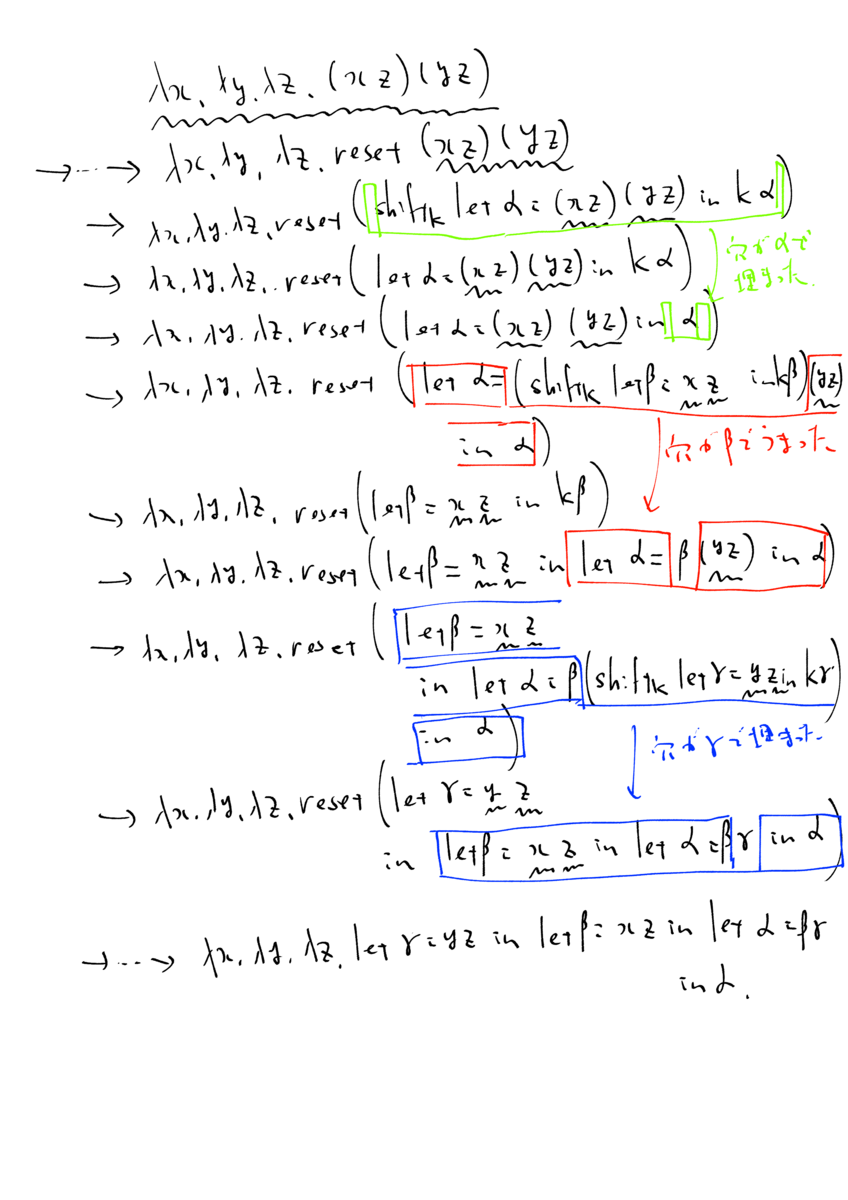 λx. λy. λz. (x z) (y z)
→ ⋯ → λx. λy. λz. reset (x z) (y z)
→ λx. λy. λz. reset (shift k let α = (x z) (y z) in k α)
穴がαで
埋まった.
→ λx. λy. λz. reset (let α = (x z) (y z) in k α)
→ λx. λy. λz. reset (let α = (x z) (y z) in α)
→ λx. λy. λz. reset (let α = (shift k let β = x z in k β) (y z)
in α)
穴がβでうまった
→ λx. λy. λz. reset (let β = x z in k β)
→ λx. λy. λz. reset (let β = x z in let α = β (y z) in α)
→ λx. λy. λz. reset (let β = x z
in let α = β (shift k let γ = y z in k γ)
in α)
穴がγで埋まった.
→ λx. λy. λz. reset (let γ = y z
in let β = x z in let α = β γ in α)
→ ⋯ → λx. λy. λz. let γ = y z in let β = x z in let α = β γ
in α.